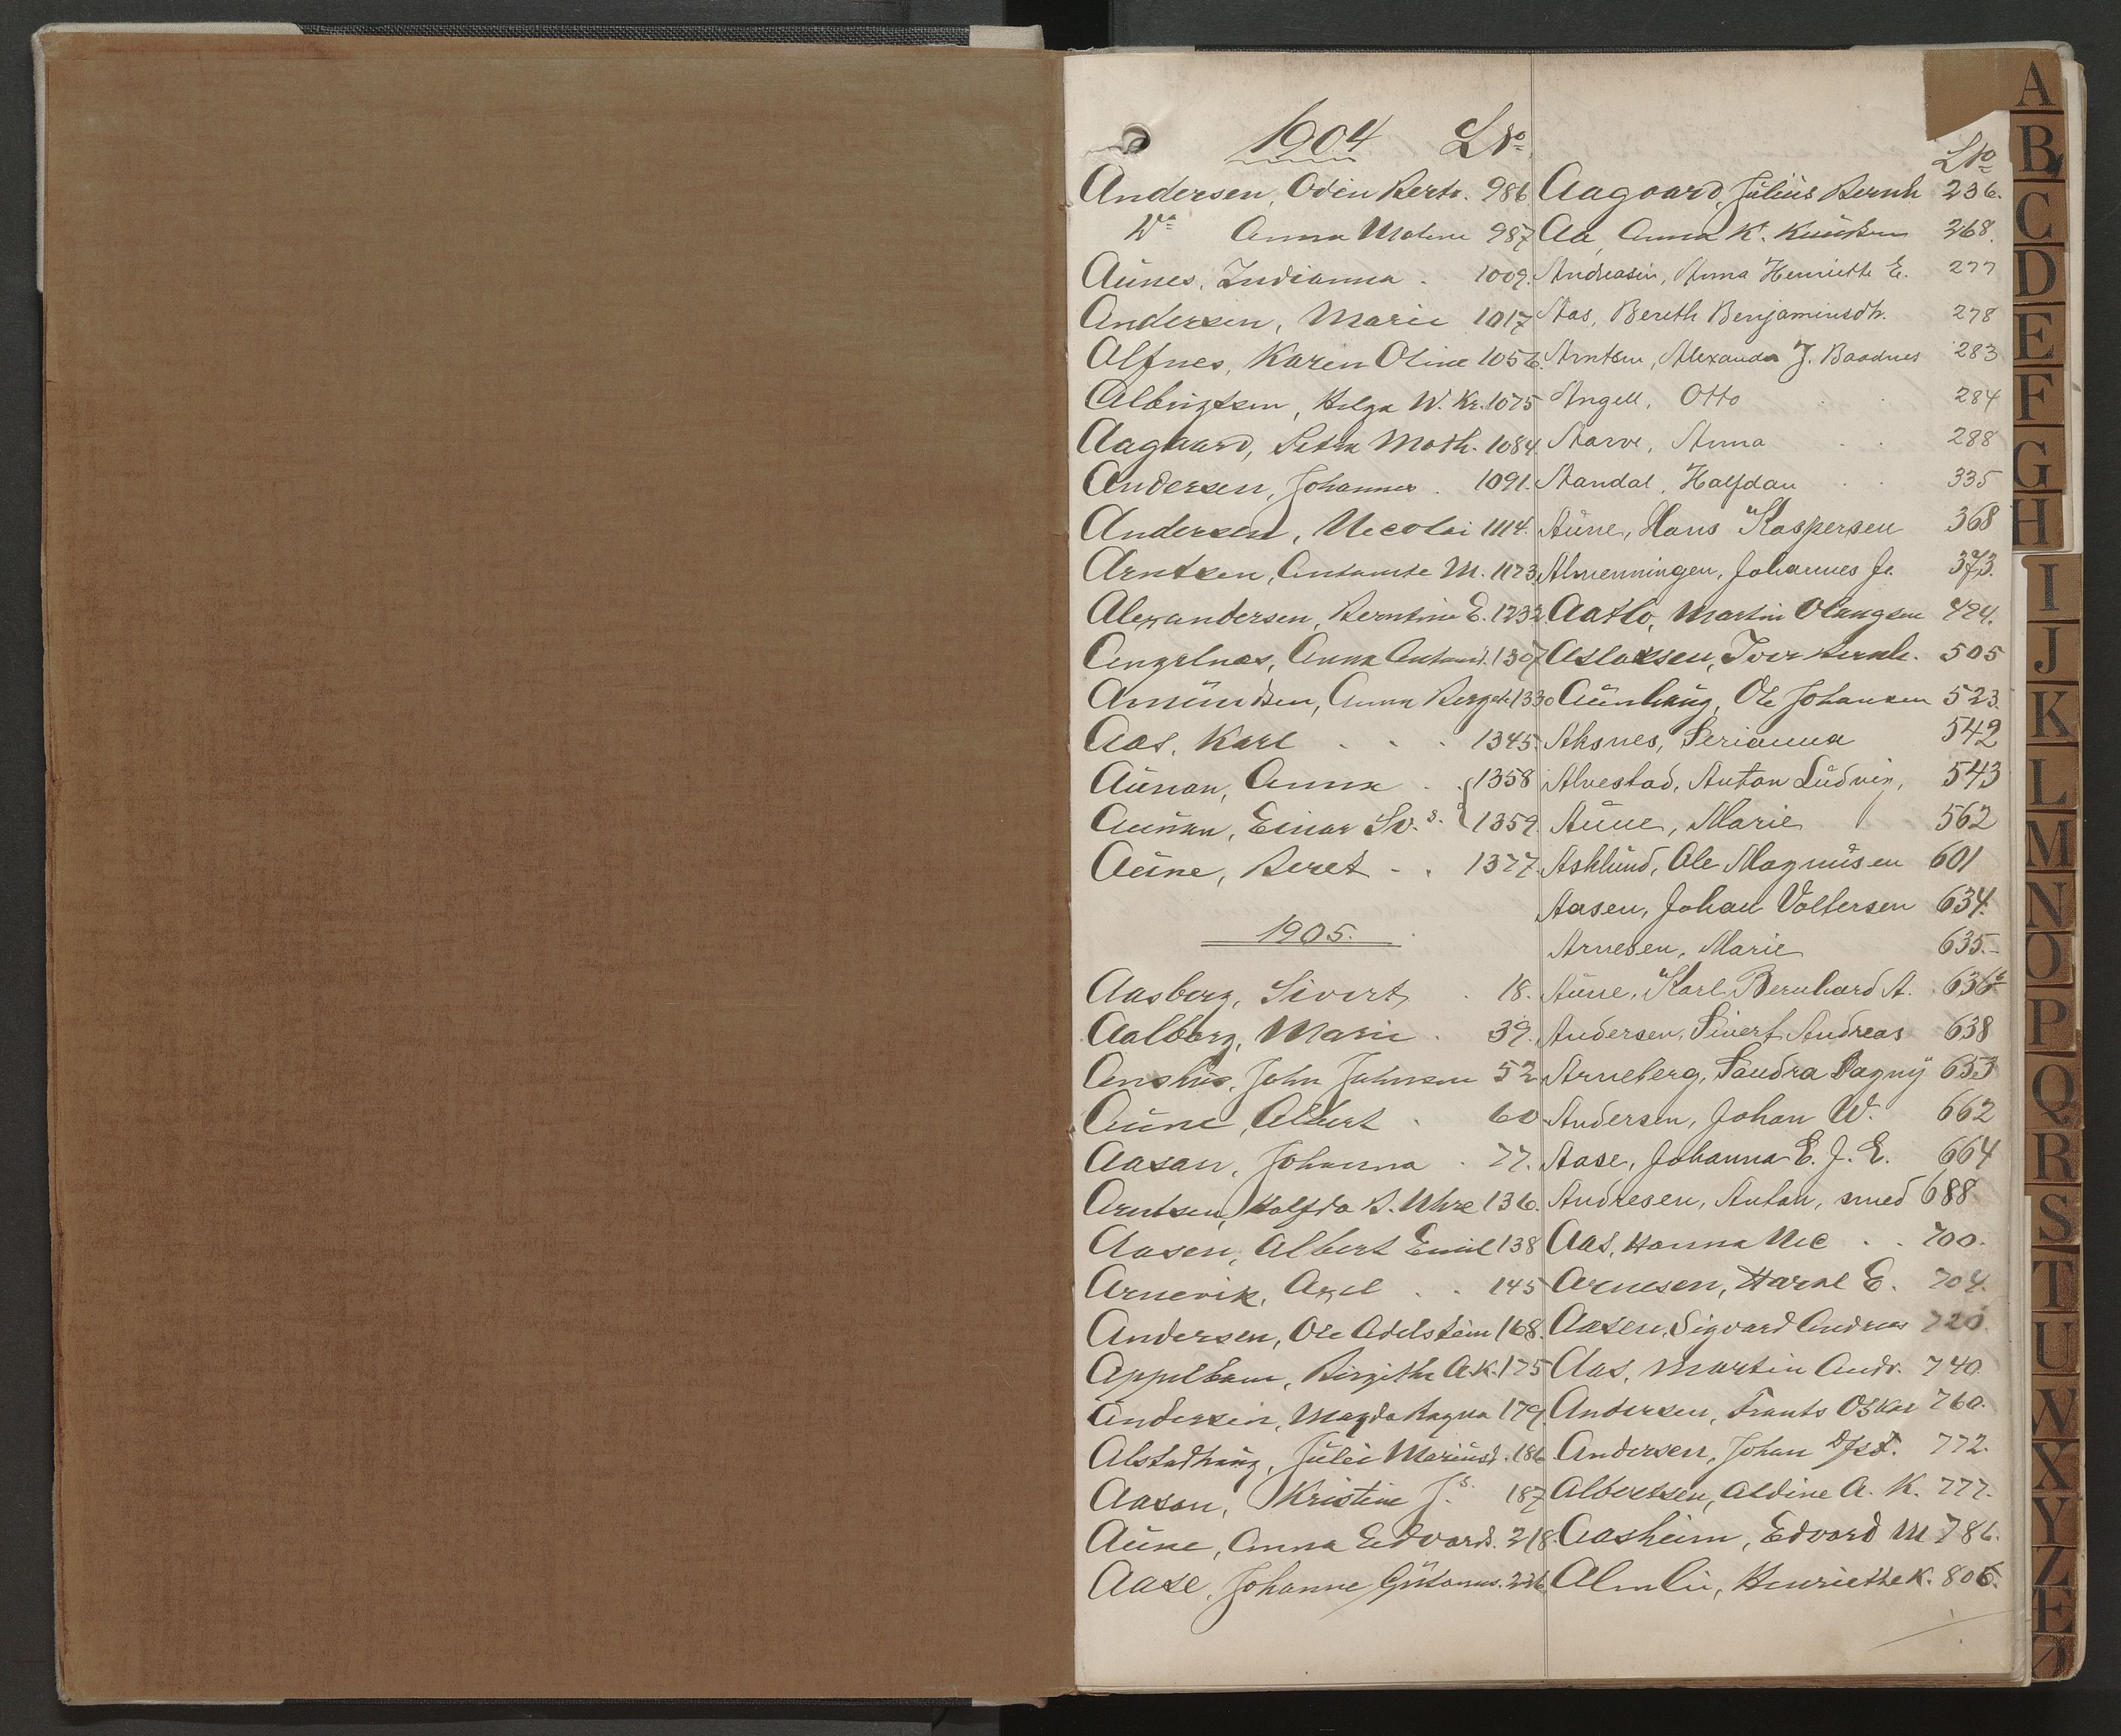 1904 L№
Andersen, Odin Bertr. 986
Do Anna Molene 987
Aünes, Indianna . 1009.
Andersen, Marie 1017
Alfnes, Karen Oline 1056.
Albrigtsen, Helga W. Kr. 1075
Aagaard, Petra Math. 1084.
Andersen, Johannes . 1091.
Andersen, Nicolai 1114.
Arntzen, M. 1173.
Alexandersen, Berntine E. 1232.
Engelnæs, Anna 1307
Amündsen, Anna 1330
Aas, Karl . . . 1345.
Aünan, Anna . . 1358
Aünan, Einar Sv.s. 1359.
Aüne, Beret - . 1377.
1905.
Aasberg, Sivert, . 18.
Aalberg, Marie . 39.
John Johnsen 52
Aüne, Albert . 60
Aasan, Johanna . 77.
Arntsen, Halfda B. Uhre 136.
Aasen, Albert Emil 138
Arnevik, Axel . . 145
Andersen, Ole Adelsteim 168.
Appelbom, Birgithe A.K. 175
Andersen, Magda Ragna 179.
Alstadhaüg, Jülie Mariüsd. 186
Aasan, Kristine J.s. 187
Aüne, Anna Edvards. 218.
Aase, Johanne Güstavus. 226.
L№
Aagaard, Jüliüs Bernh 236.
Aa, Anna K. Knüdsen 268.
Andreasen, Anna Henriette E. 277
Aas, Bereth Benjaminsdtr. 278
Arntsen, Alexander J. Baadnes 283
Angell, Otto . . 284
Aarve, Anna . . 288
Aandal, Halfdan . . 335
Aüne, Hans Kaspersen 368
Almenningen, Johannes Jr. 373.
Aatlo, Martin Olaugsen 494.
Aslaksen, Iver Bernh. 505
Aünhaüg, Ole Johansen 523.
Aksnes, Serianna 542
Alvestad, Anton Lüdvig, 543
Aüne, Marie 562
Asklünd, Ole Magnüsen 601
Aasen, Johan Voltersen 634.
Arnesen, Marie 635.-
Aüne, Karl Bernhard A. 636
Andersen, Sivert Andreas 638
Arneberg, Sandra Dagny 653
Andersen, Johan W. 662
Aase, Johanna E. J. E. 664
Andresen, Anton, smed 688.
Aas, Hanna Nic . . 700.
Arnesen, Haral E. 704.
Aasen, Sigvard Andreas 720.
Aas, Martin Andr. 740.
Andersen, Frants Oskar 760.
Andersen, Johan 772.
Albertsen, Aldine A. K. 777.
Aasheim, Edvard M 786.
Almli, Henriette K. 806.
A
B
C
D
E
F
G
H
I
J
K
L
M
N
O
P
Q
R
S
T
U
W
X
Y
Z
Æ
Ø